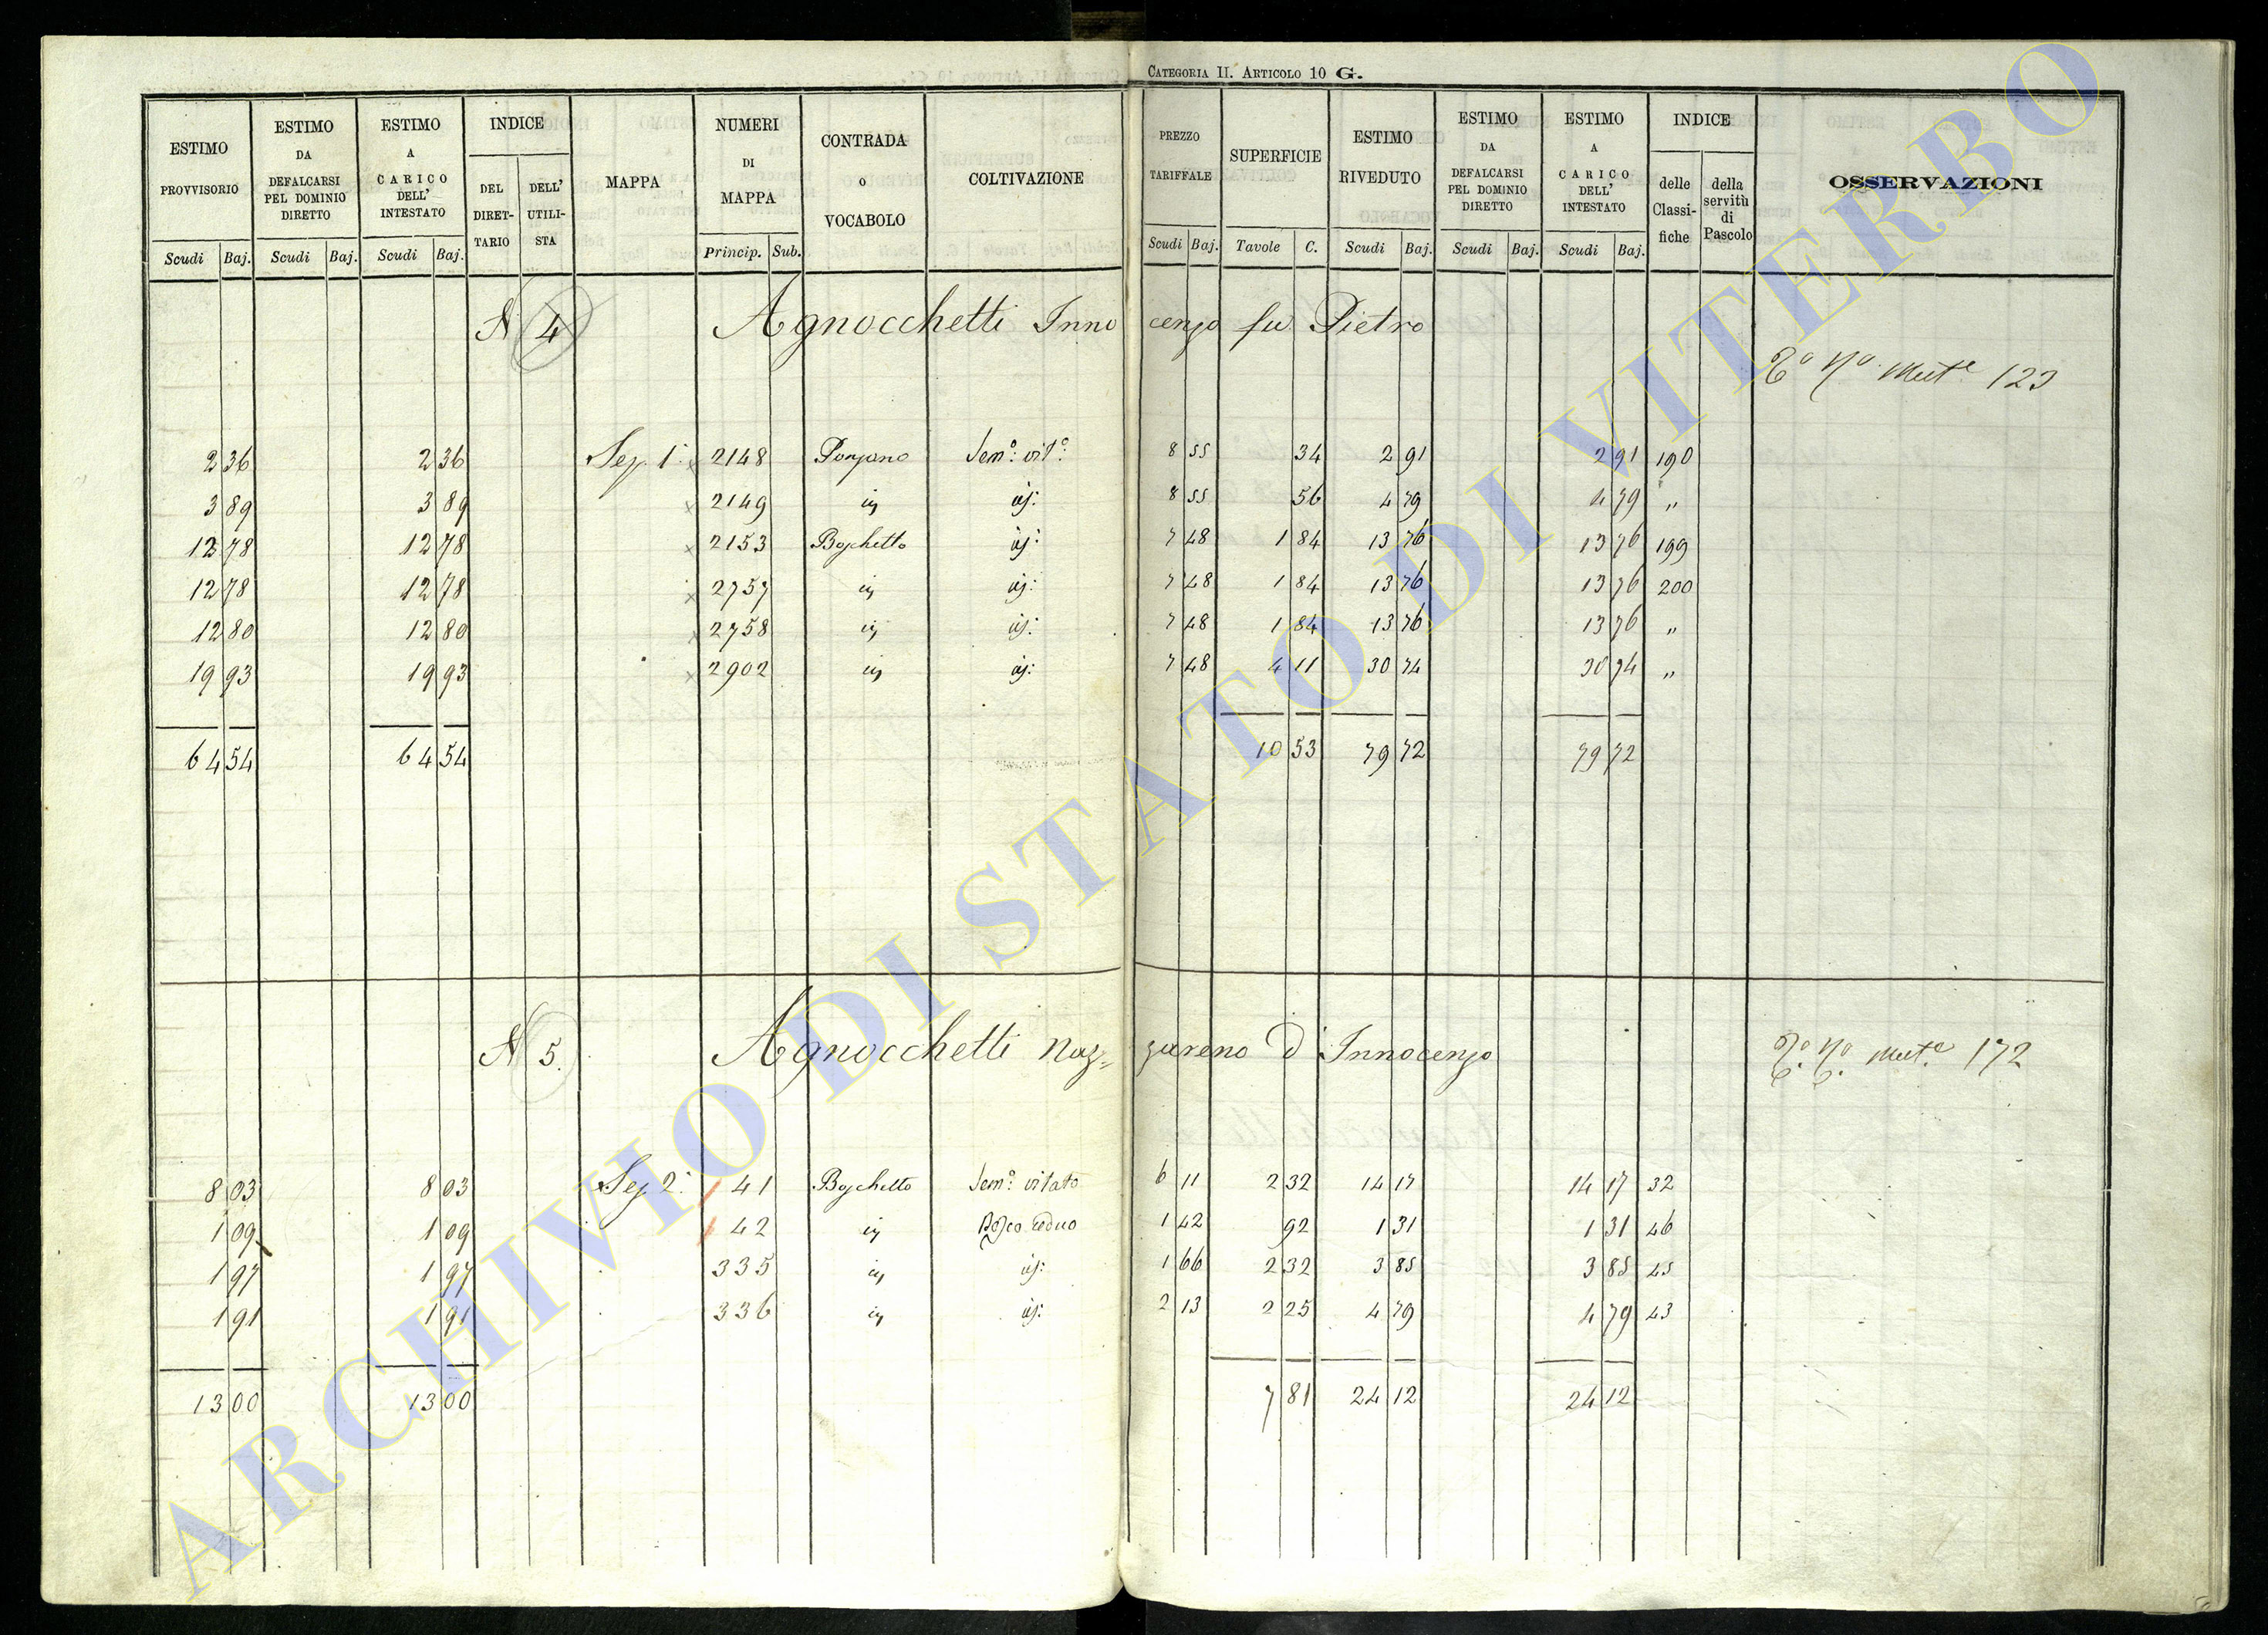 CATEGORIA II. ARTICOLO 10 G.
ESTIMO PROVVISORIO | ESTIMO DA DEFALCARSI PEL DOMINIO DIRETTO | ESTIMO A CARICO DELL' INTESTATO | INDICE | MAPPA | NUMERI DI MAPPA | CONTRADA O VOCABOLO | COLTIVAZIONE | PREZZO TARIFFALE | SUPERFICIE | ESTIMO RIVEDUTO | ESTIMO DA DEFALCARSI PEL DOMINIO DIRETTO | ESTIMO A CARICO DELL' INTESTATO | INDICE | OSSERVAZIONI
DEL DIRETTARIO | DELL' UTILISTA | delle Classifiche | della servitù di Pascolo
Scudi | Baj. | Scudi | Baj. | Scudi | Baj. | Princip. | Sub. | Scudi | Baj. | Tavole | C. | Scudi | Baj. | Scudi | Baj. | Scudi | Baj.
N 4 Agnocchetti Innocenzo fu Pietro
Mut.e 123
2 36 | 2 36 | Sez. 1. | 2148 | Ponzano | Sem.o vit.o | 8 55 | 34 | 2 91 | 2 91 | 190
3 89 | 3 89 | 2149 | | | 8 55 | 56 | 4 79 | 4 79 | "
12 78 | 12 78 | 2153 | Boschetto | | 7 48 | 1 84 | 13 76 | 13 76 | 199
12 78 | 12 78 | 2757 | | | 7 48 | 1 84 | 13 76 | 13 76 | 200
12 80 | 12 80 | 2758 | | | 7 48 | 1 84 | 13 76 | 13 76 | "
19 93 | 19 93 | 2902 | | | 7 48 | 4 11 | 30 74 | 30 74 | "
64 54 | 64 54 | 10 53 | 79 72 | 79 72
N 5. Agnocchetti Nazzareno d' Innocenzo
Mut.e 172
8 03 | 8 03 | Sez. 2. | 41 | Boschetto | Sem.o vitato | 6 11 | 2 32 | 14 17 | 14 17 | 32
1 09 | 1 09 | 42 | | Bosco ceduo | 1 42 | 92 | 1 31 | 1 31 | 46
1 97 | 1 97 | 335 | | | 1 66 | 2 32 | 3 85 | 3 85 | 45
1 91 | 1 91 | 336 | | | 2 13 | 2 25 | 4 79 | 4 79 | 43
13 00 | 13 00 | 7 81 | 24 12 | 24 12
ARCHIVIO DI STATO DI VITERBO